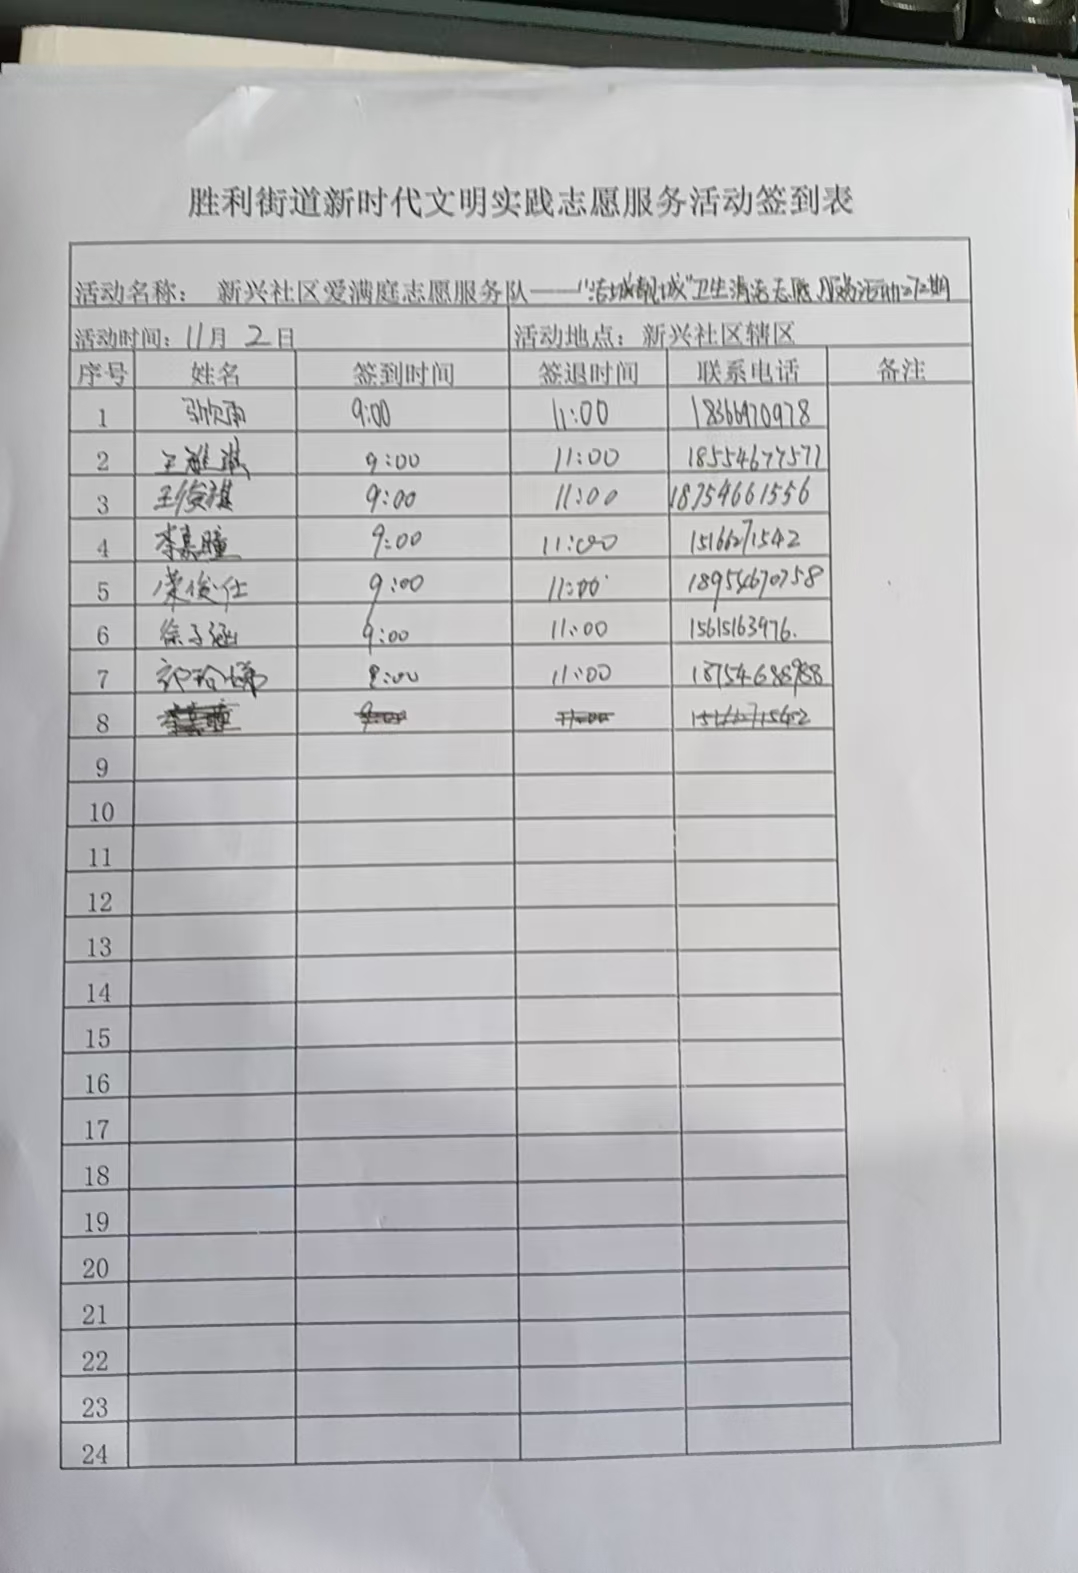 胜利街道新时代文明实践志愿服务活动签到表
活动名称： 新兴社区爱满庭志愿服务队——"洁城靓城"卫生清洁志愿服务活动
活动时间：11月2日 活动地点：新兴社区辖区
序号 姓名 签到时间 签退时间 联系电话 备注
1 9:00 11:00 18366970978
2 王雅淇 9:00 11:00 18554677571
3 王俊祺 9:00 11:00 18754661556
4 李嘉瞳 9:00 11:00 15166271542
5 荣俊仕 9:00 11:00 18954670758
6 徐子涵 9:00 11:00 15615163976.
7 11:00 18754688988
8
9
10
11
12
13
14
15
16
17
18
19
20
21
22
23
24